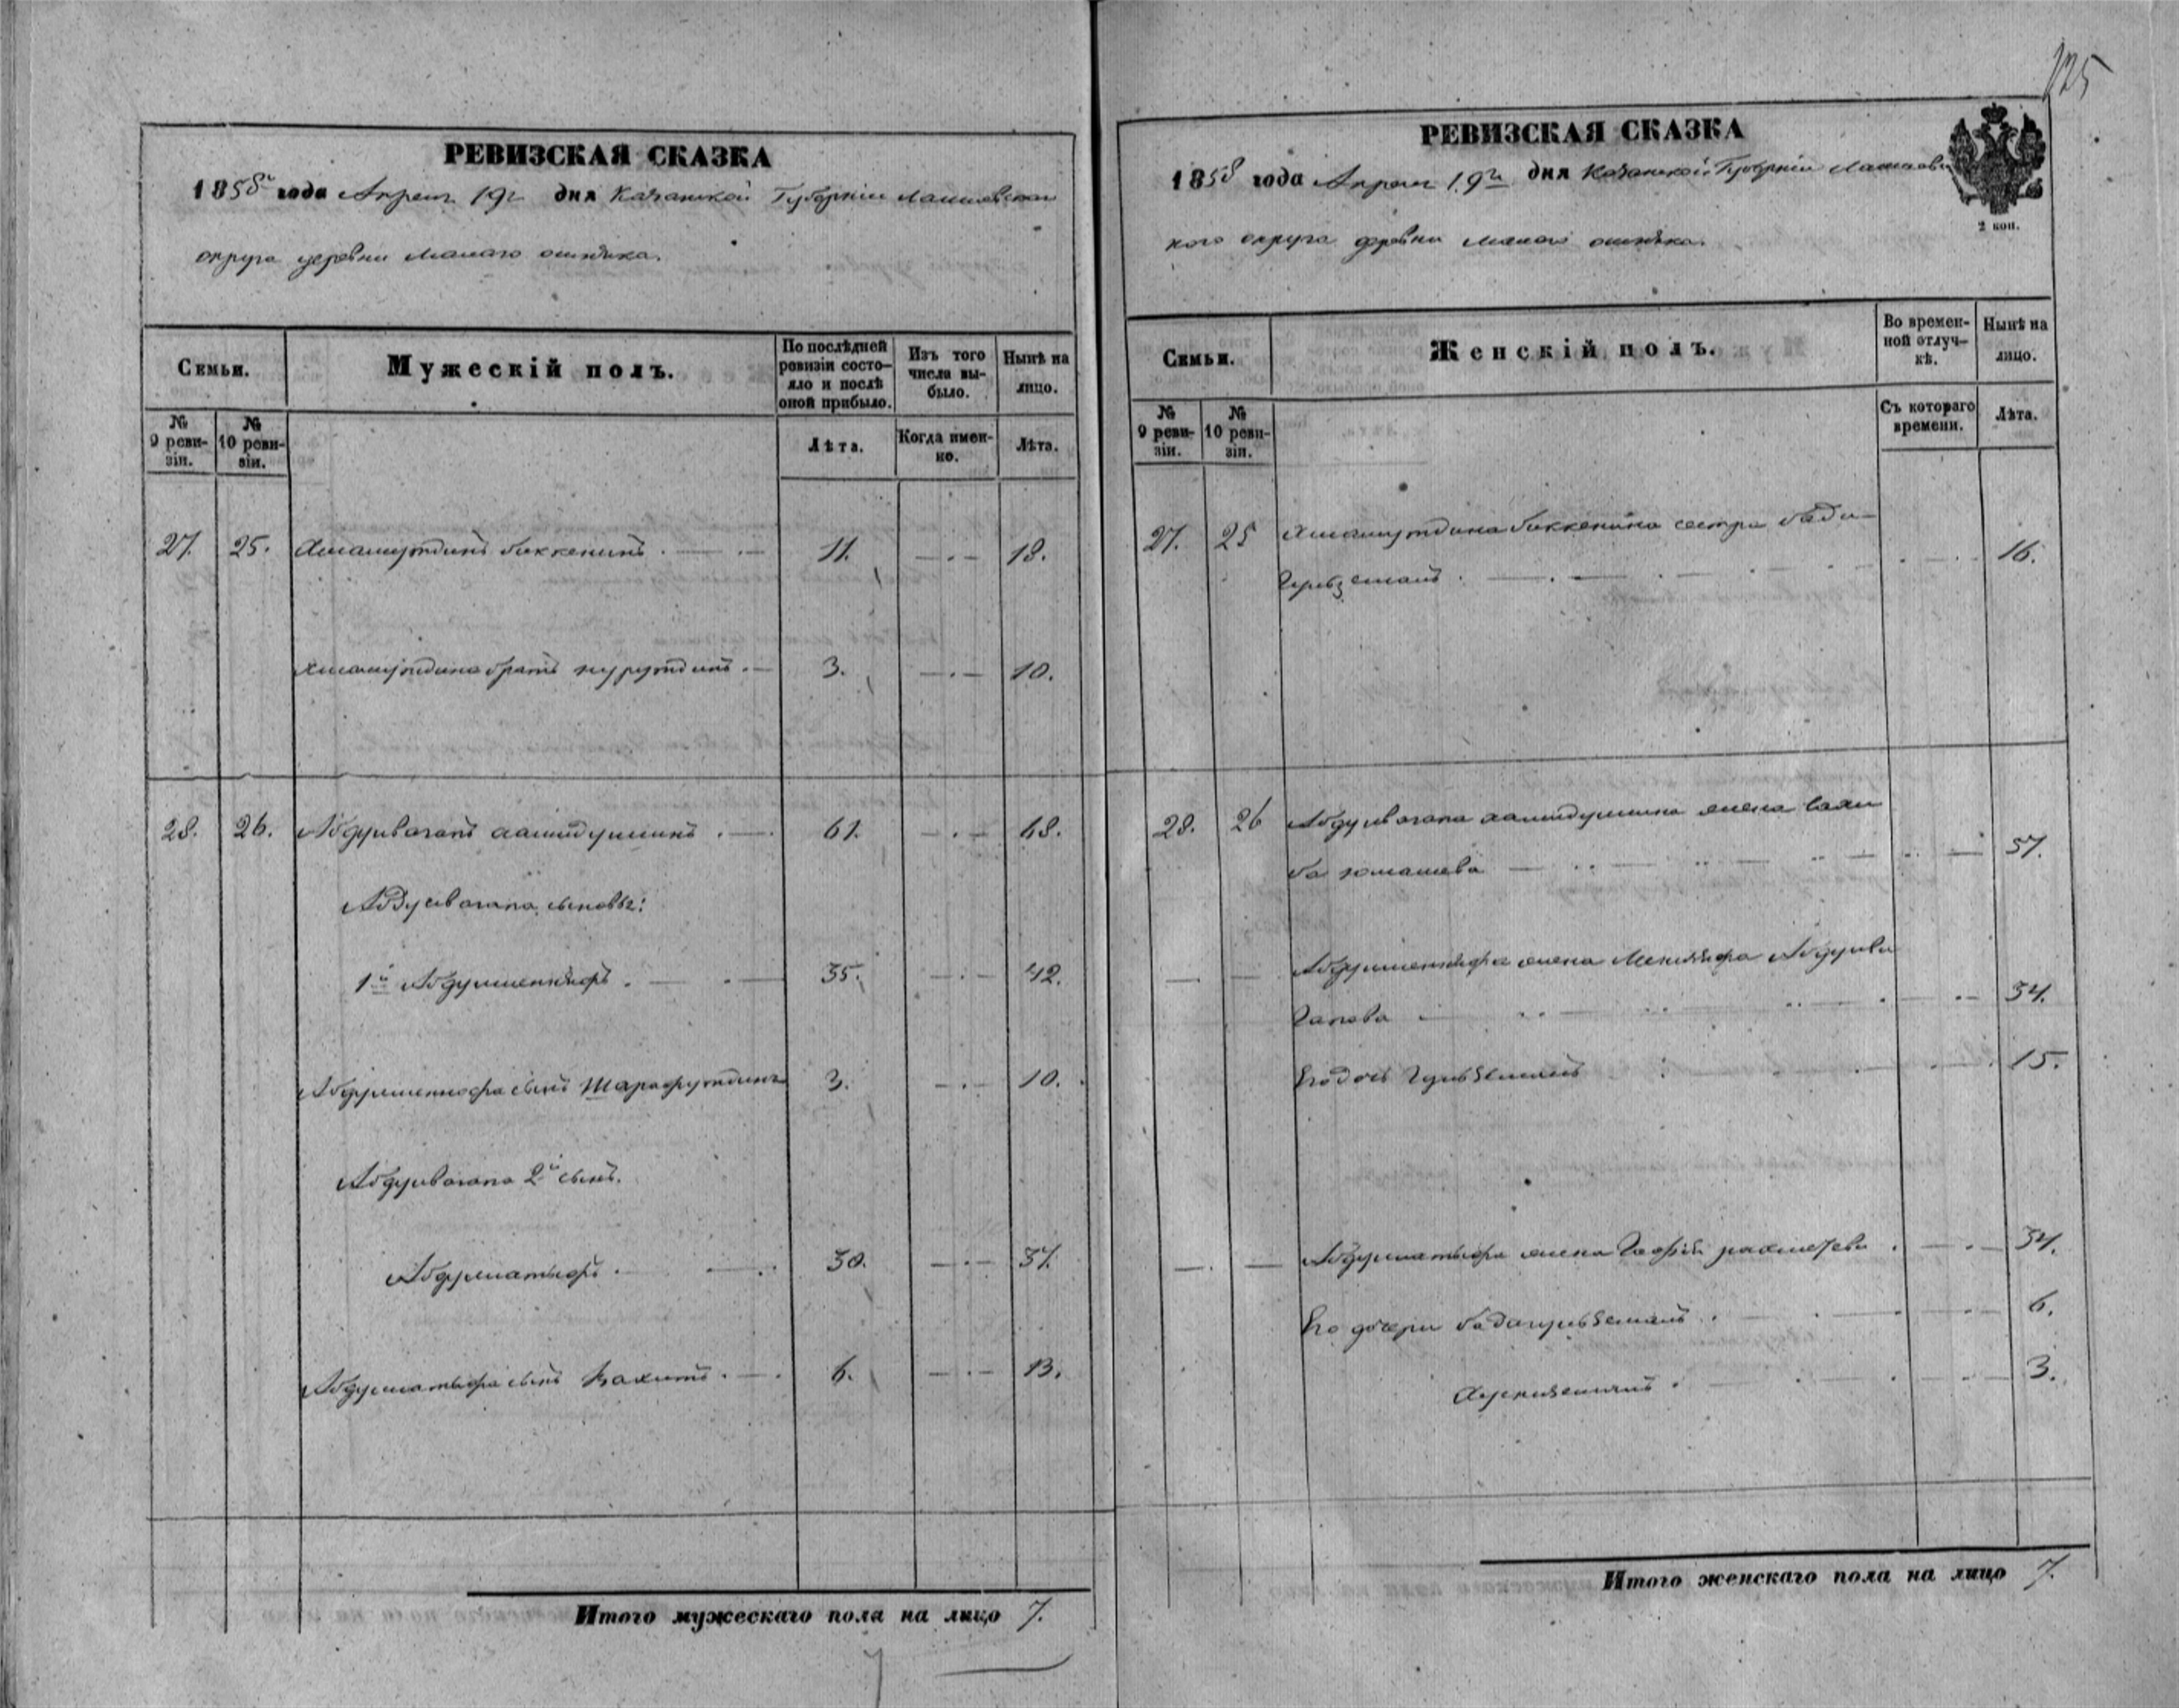 125
РЕВИЗСКАЯ СКАЗКА
1858 года Апреля 19 дня Казанской Губернии Лаишевскаго
округа деревни Малаго
Семьи.
Мужескій полъ.
По послѣдней ревизіи состояло и послѣ оной прибыло.
Изъ того числа выбыло.
Нынѣ на лицо.
№ 9 ревизіи.
№ 10 ревизіи.
Лѣта.
Когда именно.
Лѣта.
27. 25. Хисамутдинъ Биккенинъ 11. 18.
Хисамутдина братъ Нурутдинъ 3. 10.
28. 26. Абдулвагапъ 61. 68.
Абдулвагапа сыновья:
1й 35. 42.
сынъ Шарафутдинъ 3. 10.
Абдулвагапа 2й сынъ.
Абдуллатыфъ 30. 37.
Абдуллатыфа сынъ Вахитъ 6. 13.
Итого мужескаго пола на лицо 7.
РЕВИЗСКАЯ СКАЗКА
1858 года Апреля 19 дня Казанской Губернии Лаишевс
2 коп.
кого округа деревни Малаго
Семьи.
Женскій полъ.
Во временной отлучкѣ.
Нынѣ на лицо.
№ 9 ревизіи.
№ 10 ревизіи.
Съ котораго времени.
Лѣта.
27. 25 Хисамутдина Биккенина сестра Бади-
гульземалъ 16.
28. 26 Абдулвагапа жена
ба Юмашева 57.
жена Абдулва
гапова 34.
Его дочь Гульземалъ 15.
Абдуллатыфа жена 34.
Его дочери Бадигульземалъ 6.
3.
Итого женскаго пола на лицо 7.